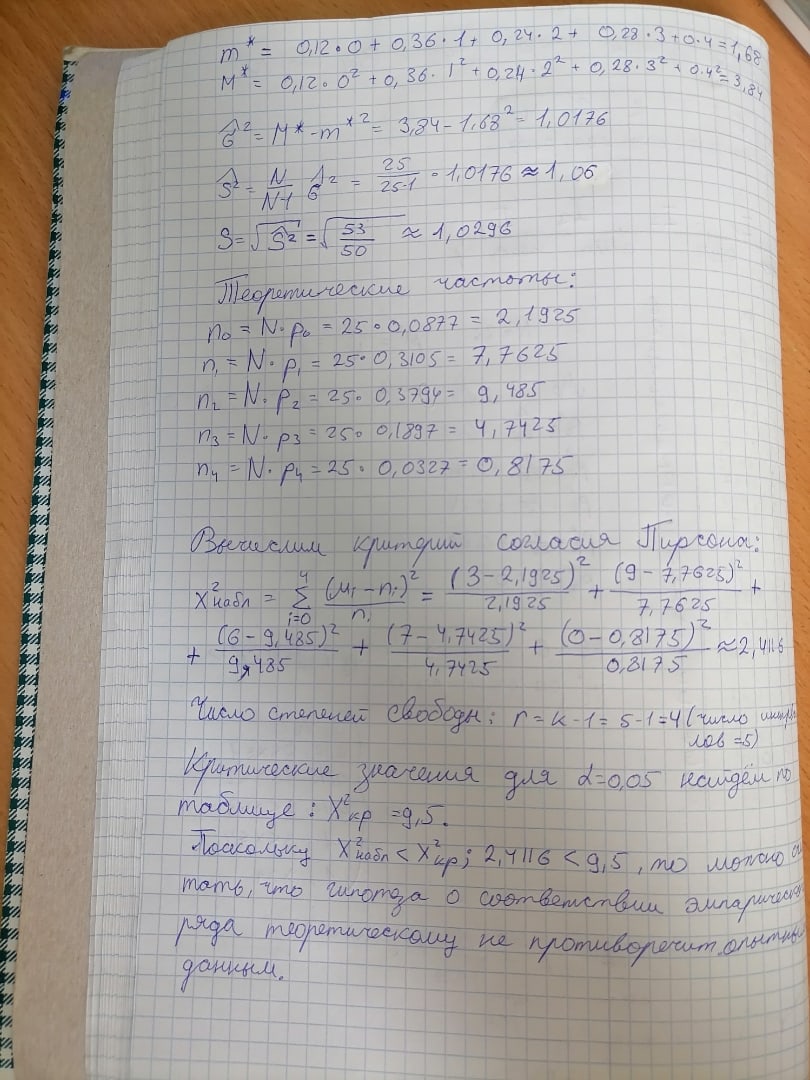 m* = 0,12·0 + 0,36·1 + 0,24·2 + 0,28·3 + 0·4 = 1,68
M* = 0,12·0² + 0,36·1² + 0,24·2² + 0,28·3² + 0·4² = 3,84
σ̂² = M* - m*² = 3,84 - 1,68² = 1,0176
Ŝ² = N/(N-1) σ̂² = 25/(25-1) · 1,0176 ≈ 1,06
S = √Ŝ² = √(53/50) ≈ 1,0296
Теоретические частоты:
n₀ = N·p₀ = 25·0,0877 = 2,1925
n₁ = N·p₁ = 25·0,3105 = 7,7625
n₂ = N·p₂ = 25·0,3794 = 9,485
n₃ = N·p₃ = 25·0,1897 = 4,7425
n₄ = N·p₄ = 25·0,0327 = 0,8175
Вычислим критерий согласия Пирсона:
X²набл = ∑_{i=0}^{4} (μᵢ - nᵢ)²/nᵢ = (3 - 2,1925)²/2,1925 + (9 - 7,7625)²/7,7625 +
+ (6 - 9,485)²/9,485 + (7 - 4,7425)²/4,7425 + (0 - 0,8175)²/0,8175 ≈ 2,4116
Число степеней свободы: r = k - 1 = 5 - 1 = 4 (число интерва
лов = 5)
Критические значения для α=0,05 найдём по
таблице: X²кр = 9,5.
Поскольку X²набл < X²кр; 2,4116 < 9,5, то можно
тать, что гипотеза о соответствии эмпарическ
ряда теоретическому не противоречит опытны
данным.